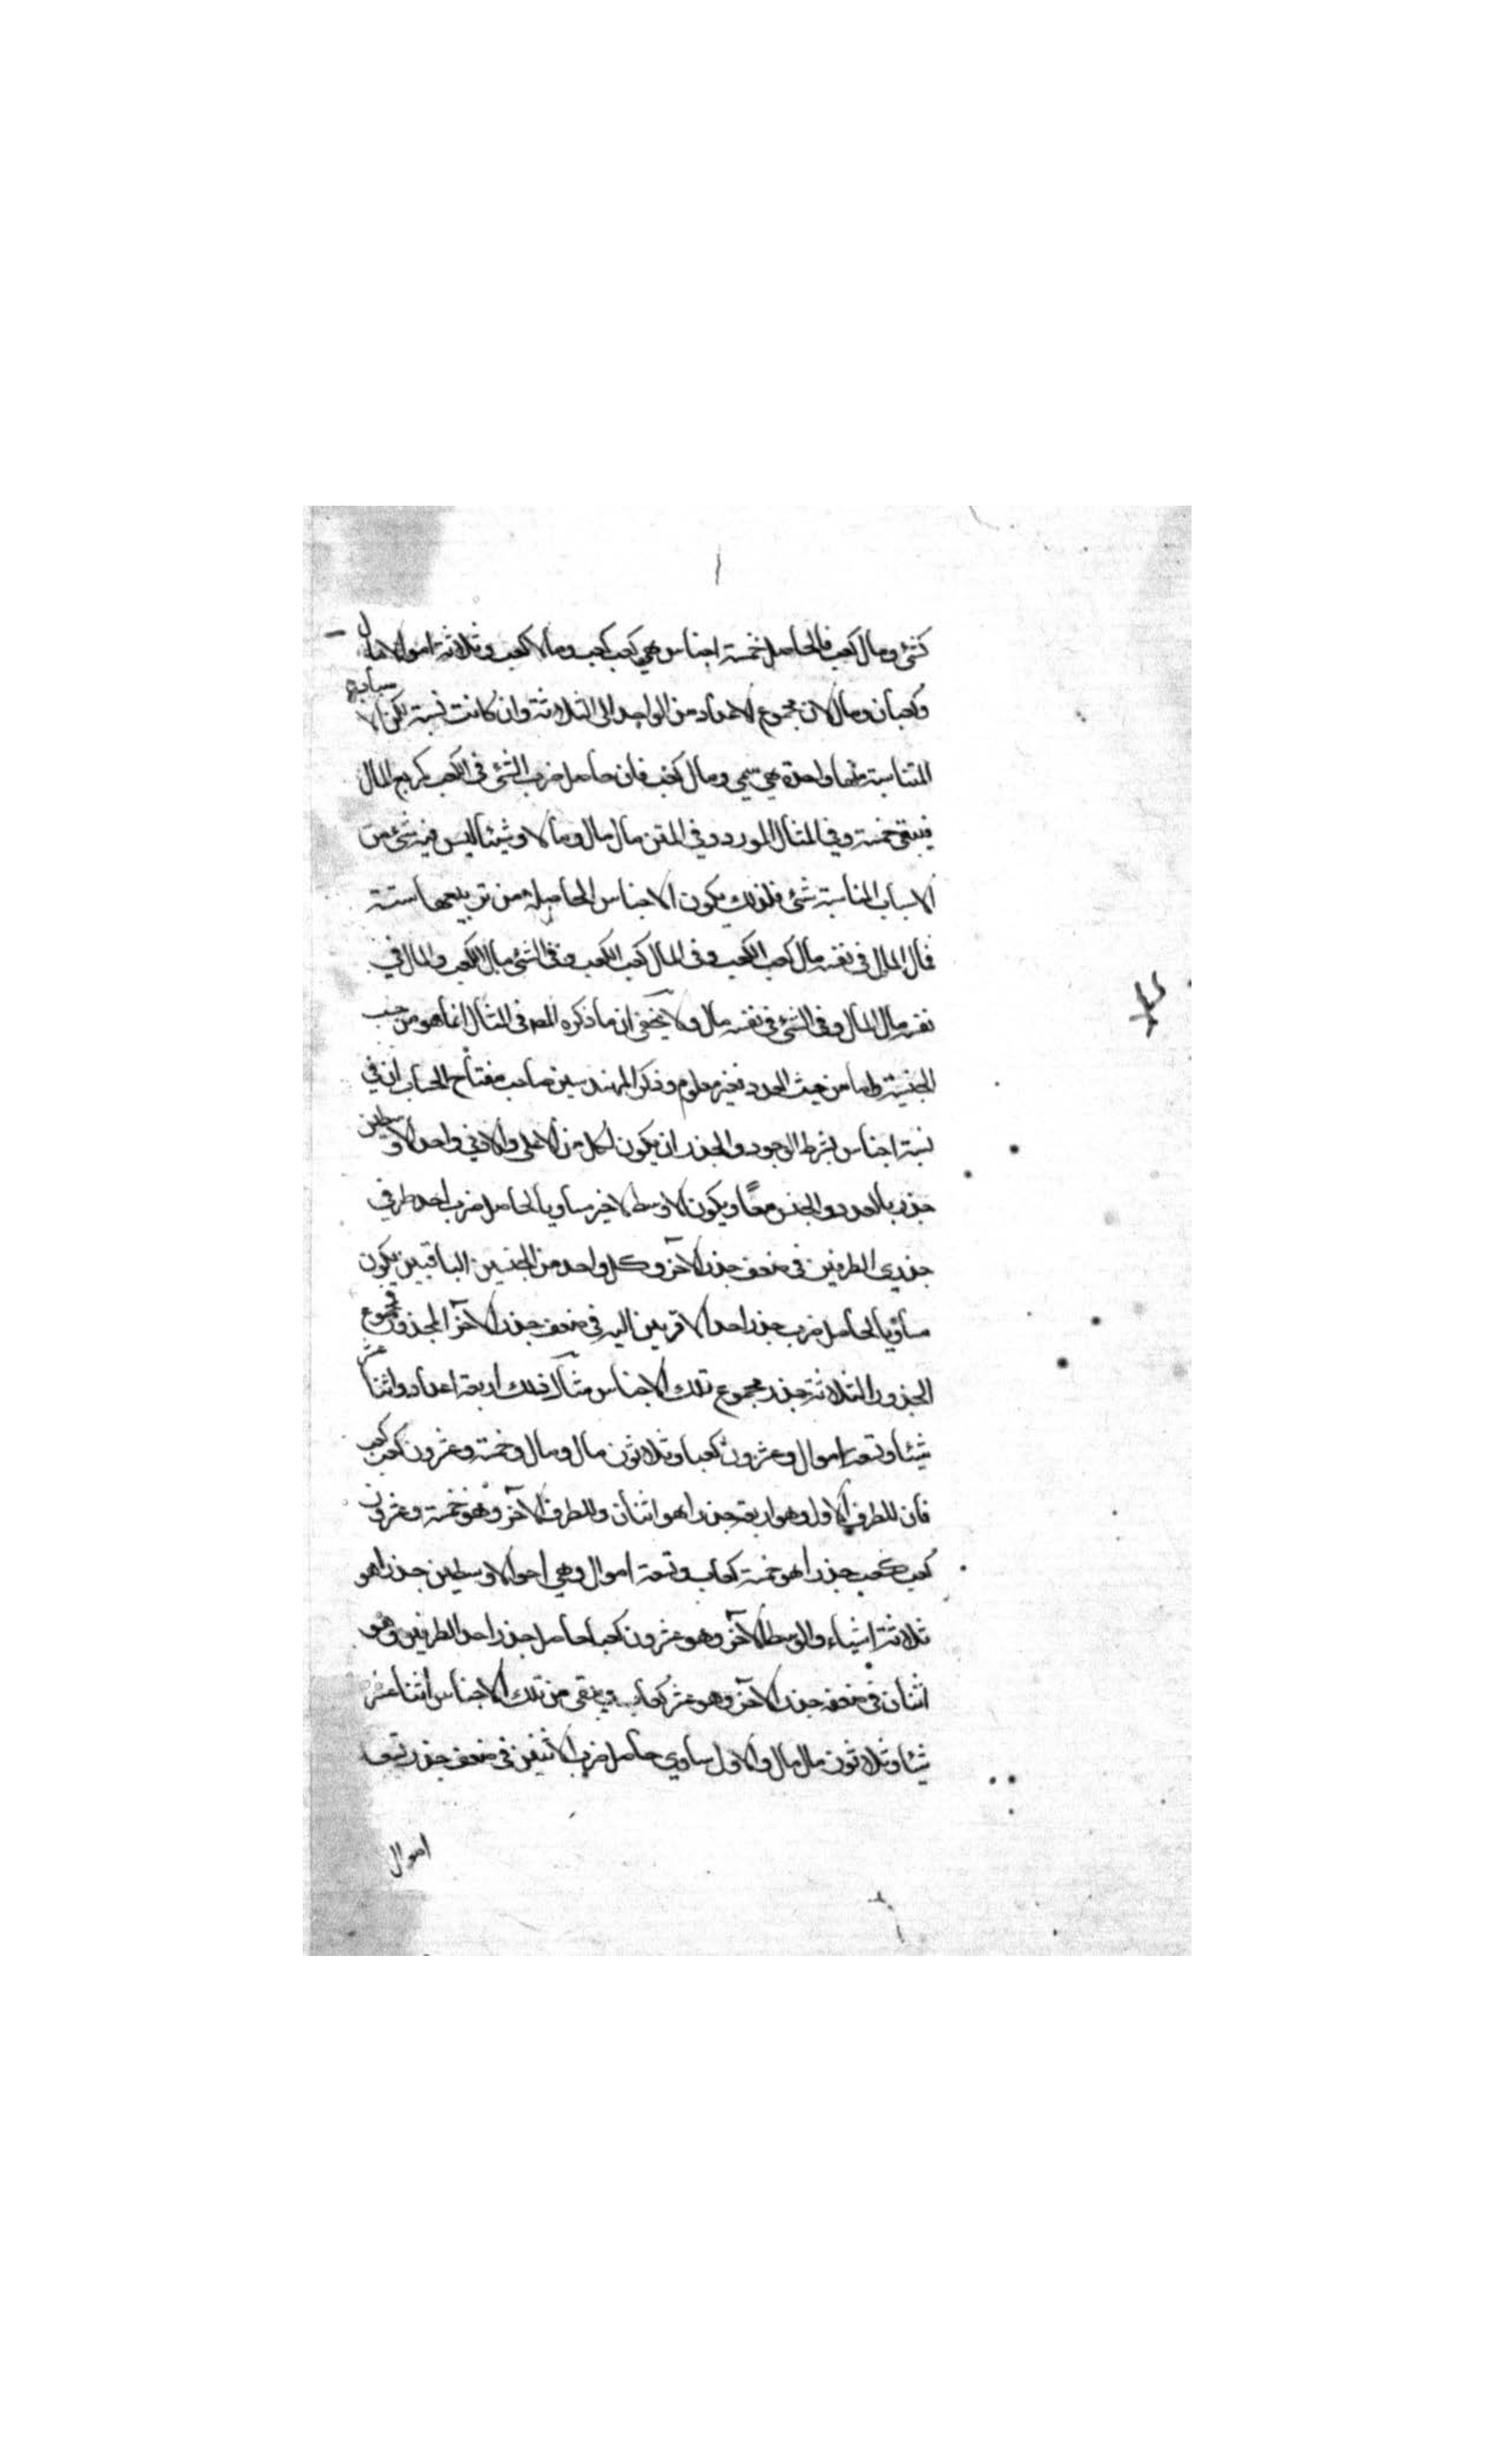 كشئ ومال كعب فالحاصل خمسة اجناس هي كعب كعب ومالا كعب وثلاثة اموال مال
وكعبان ومال لان مجموع الاعداد من الواحد الى الثلاثة وان كانت ستة لكن الاجناس
المتناسبة منها واحدة هي شئ ومال كعب فان حاصل ضرب الشئ في الكعب كمربع المال
فيبقى خمسة وفي المثال المورد في المتن مال مال ومالا وشيئا ليس فيه شئ من
الاسباب المناسبة شئ فلذلك يكون الاجناس الحاصلة من تربيعها ستة
فمال المال في نفسه مال كعب الكعب وفي المال كعب الكعب وفي الشئ مال الكعب والمال في
نفسه مال المال وفي الشئ في نفسه مال ولا يخفى ان ما ذكره المص في المثال انما هو من حيث
الجنسية واما من حيث العدد فغير معلوم وذكر المهندسين صاحب مفتاح الحساب ان في
ستة اجناس بشرط الوجود والجذر ان يكون لكل من الاعلى والادنى واحد الاوسطين
جذر بالعدد والجنس معًا ويكون الاوسط الاخير مساويا لحاصل ضرب احد طرفي
جذري الطرفين في ضعف جذر الآخر وكل واحد من الجنسين الباقيين يكون
مساويا لحاصل ضرب جذر احد الاقربين اليه في ضعف جذر الآخر المجذور فمجموع
الجذور الثلاثة جذر مجموع تلك الاجناس مثال ذلك اربعة اعداد واثنا عشر
شيئا وتسعة اموال وعشرون كعبا وثلاثون مال ومال وخمسة وعشرون كعب كعب
فان للطرف الاول وهو اربعة جذرا هو اثنان وللطرف الآخر وهو خمسة وعشرون
كعب كعب جذرا هو خمسة كعاب وتسعة اموال وهي احد الاوسطين جذرا هو
ثلاثة اشياء والوسط الآخر وهو عشرون كعبا حاصل جذر احد الطرفين وهو
اثنان في ضعف جذر الآخر وهو عشر كعاب ويبقى من تلك الاجناس اثنا عشر
شيئا وثلاثون مال مال والاول يساوي حاصل ضرب الاثنين في ضعف جذر تسعة
اموال